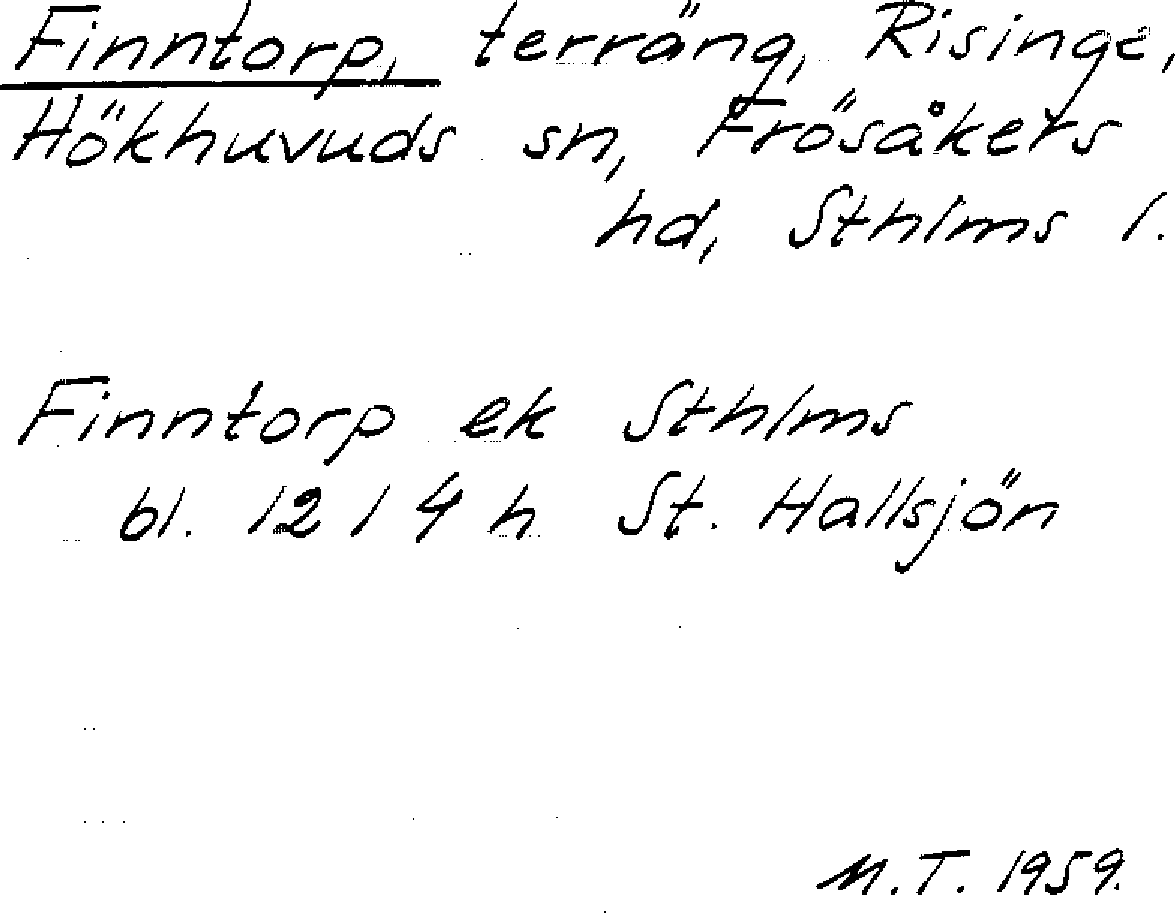 Finntorp, terräng, Risinge,
Hökhuvuds sn, Frösåkers
hd, Sthlms l.
Finntorp ek Sthlms
bl. 12 I 4 h St. Hallsjön
M.T. 1959.